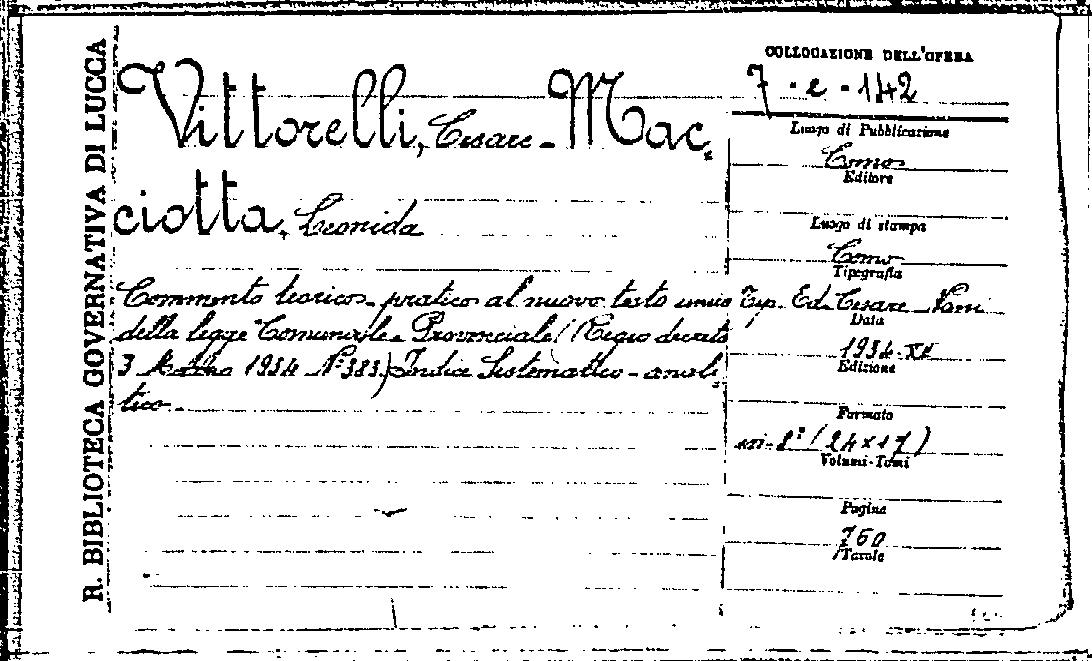 R. BIBLIOTECA GOVERNATIVA DI LUCCA
Vittorelli, Cesare - Mac-
ciotta, Leonida
Commento teorico-pratico al nuovo testo unico
della legge Comunale-Provinciale (Regio decreto
3 Marzo 1934 N° 383) Indice Sistematico-anali-
tico.
COLLOCAZIONE DELL'OPERA
7-e-142
Luogo di Pubblicazione
Como
Editore
Luogo di stampa
Como
Tipografia
Tip. Ed. Cesare Nani
Data
1934-XII
Edizione
Formato
in-8° (24x17)
Volumi-Tomi
Pagine
760
Tavole